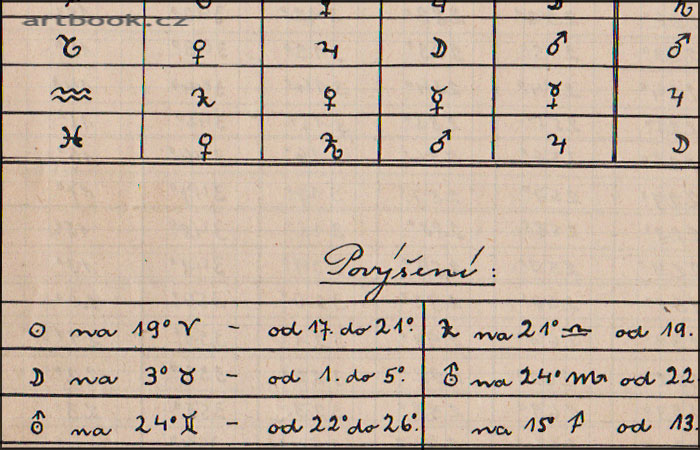 artbook.cz
♑ ♀ ♃ ☽ ♂ ♂
♒ ♄ ♀ ☿ ☿ ♃
♓ ♀ ♄ ♂ ♃ ☽
Povýšení:
☉ na 19° ♈ – od 17. do 21°. ♄ na 21° ♎ od 19.
☽ na 3° ♉ – od 1. do 5°. ⛢ na 24° ♏ od 22
⛢ na 24° ♊ – od 22° do 26°. na 15° od 13.